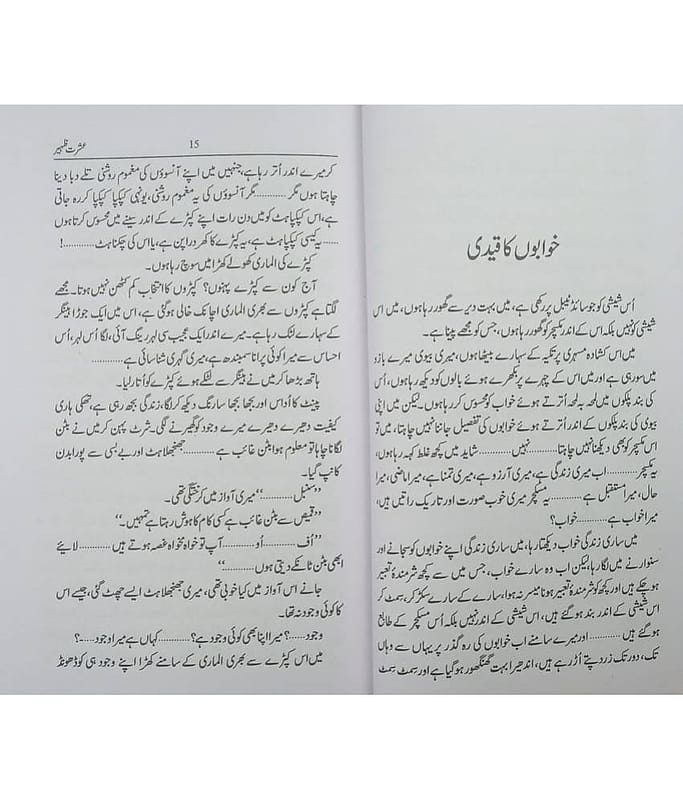 خوابوں کا قیدی
اُس شیشی کو جو سائڈ ٹیبل پر رکھی ہے، میں بہت دیر سے گھور رہا ہوں، میں اس
شیشی کو نہیں بلکہ اس کے اندر مکسچر کو گھور رہا ہوں، جس کو مجھے پینا ہے۔
میں اس کشادہ مسہری پر تکیہ کے سہارے بیٹھا ہوں، میری بیوی میرے بازو
میں سو رہی ہے اور میں اس کے چہرے پر بکھرے ہوئے بالوں کو دیکھ رہا ہوں، اُس
کی بند پلکوں میں لمحہ بہ لمحہ اُترتے ہوئے خواب کو محسوس کر رہا ہوں۔ لیکن میں اپنی
کی بند پلکوں کے اندر اُترتے ہوئے خوابوں کی تفصیل جاننا نہیں چاہتا، میں تو
اس مکسچر کو بھی دیکھنا نہیں چاہتا............نہیں............ شاید میں کچھ غلط کہہ رہا ہوں،
یہ مکسچر.......... اب میری زندگی ہے، میری آرزو ہے، میری تمنا ہے، میرا ماضی، میرا
حال، میرا مستقبل ہے .......... یہ مکسچر میری خوب صورت اور تاریک راتیں ہیں،
میرا خواب ہے .......... خواب؟
میں ساری زندگی خواب دیکھتا رہا، میں ساری زندگی اپنے خوابوں کو سجانے اور
سنوارنے میں لگا رہا، لیکن اب وہ سارے خواب، جس میں سے کچھ شرمندۂ تعبیر
ہو چکے ہیں اور کچھ کو شرمندۂ تعبیر ہونا میسر نہ ہوا، سارے کے سارے سکڑ کر، سمٹ کر
اس شیشی کے اندر بند ہو گئے ہیں، اس شیشی کے اندر نہیں بلکہ اُس مکسچر کے طابع
ہو گئے ہیں..........اور میرے سامنے اب خوابوں کی رہ گذر پر یہاں سے وہاں
تک، دور تک زرد پتے اُڑ رہے ہیں، اندھیرا بہت گھنگھور ہو گیا ہے اور سمٹ سمٹ
15 عشرت ظہیر
کر میرے اندر اُتر رہا ہے، جنہیں میں اپنے آنسوؤں کی مغموم روشنی تلے دبا دینا
چاہتا ہوں مگر............مگر آنسوؤں کی یہ مغموم روشنی، یونہی کپکپا کپکپا کر رہ جاتی
ہے، اس کپکپاہٹ کو میں دن رات اپنے کپڑے کے اندر سینے میں محسوس کرتا ہوں
...... یہ کیسی کپکپاہٹ ہے، یہ کپڑے کا کھردراپن ہے، یا اس کی چکناہٹ............!
کپڑے کی الماری کھولے کھڑا میں سوچ رہا ہوں۔
آج کون سے کپڑے پہنوں؟ کپڑوں کا انتخاب کم کٹھن نہیں ہوتا۔ مجھے
لگتا ہے کپڑوں سے بھری الماری اچانک خالی ہو گئی ہے، اس میں ایک جوڑا ہینگر
کے سہارے لٹک رہا ہے۔ میرے اندر ایک عجیب سی لہر رینگ آئی، لگا اُس لہر، اُس
احساس سے میرا کوئی پرانا سمبندھ ہے، میری گہری شناسائی ہے............
ہاتھ بڑھا کر میں نے ہینگر سے لٹکے ہوئے کپڑے کو اُتار لیا۔
پینٹ کا اُداس اور بجھا بجھا سا رنگ دیکھ کر لگا، زندگی بجھ رہی ہے، تھکی ہاری
کیفیت دھیرے دھیرے میرے وجود کو گھیرنے لگی۔ شرٹ پہن کر میں نے بٹن
لگانا چاہا تو معلوم ہوا بٹن غائب ہے............ جھنجھلاہٹ اور بے بسی سے پورا بدن
کانپ گیا۔
’’سنبل............‘‘ میری آواز میں کرختگی تھی۔
’’قمیص سے بٹن غائب ہے کسی کام کا ہوش رہتا ہے تمہیں۔‘‘
’’اُف ............اُو............ آپ تو خواہ مخواہ غصہ ہوتے ہیں ............ لائیے
ابھی بٹن ٹانکے دیتی ہوں............‘‘
جانے اس آواز میں کیا خوبی تھی، میری جھنجھلاہٹ ایسے چھٹ گئی، جیسے اس
کا کوئی وجود نہ تھا۔
وجود......؟ میرا اپنا بھی کوئی وجود ہے؟............ کہاں ہے میرا وجود......؟
میں اس کپڑے سے بھری الماری کے سامنے کھڑا اپنے وجود ہی کو ڈھونڈ